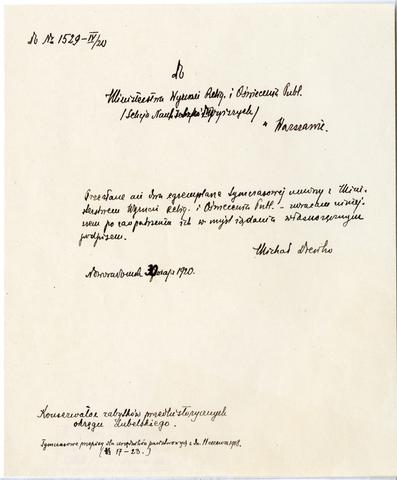 Do № 1529-IV/20
Do
Ministerstwa Wyznań Relig. i Oświecenia Publ.
/Sekcja Nauk i Szkół Wyższych/
w Warszawie.
Przesłane mi dwa egzemplarze tymczasowej umowy z Mini-
sterstwem Wyznań Relig. i Oświecenia Publ. - zwracam niniej-
szem po zaopatrzeniu ich w myśl żądania własnoręcznym
podpisem.
Michał Drewko
maja 1920.
Konserwator zabytków przedhistorycznych
okręgu Lubelskiego.
Tymczasowe przepisy dla urzędników państwowych z dn. 11 czerwca 1918.
(§§ 17-23.)